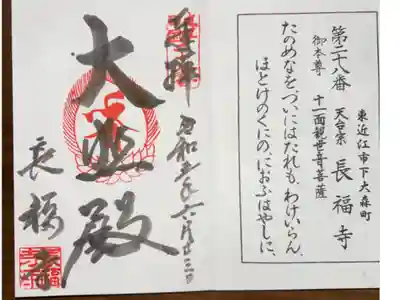 東近江市下大森町
第二十八番 天台宗 長福寺
御本尊 十一面観世音菩薩
たのめなを、ついにはたれも、わけいらん、
ほとけのくにの、におふはやしに、
奉拝
大悲殿
長福寺